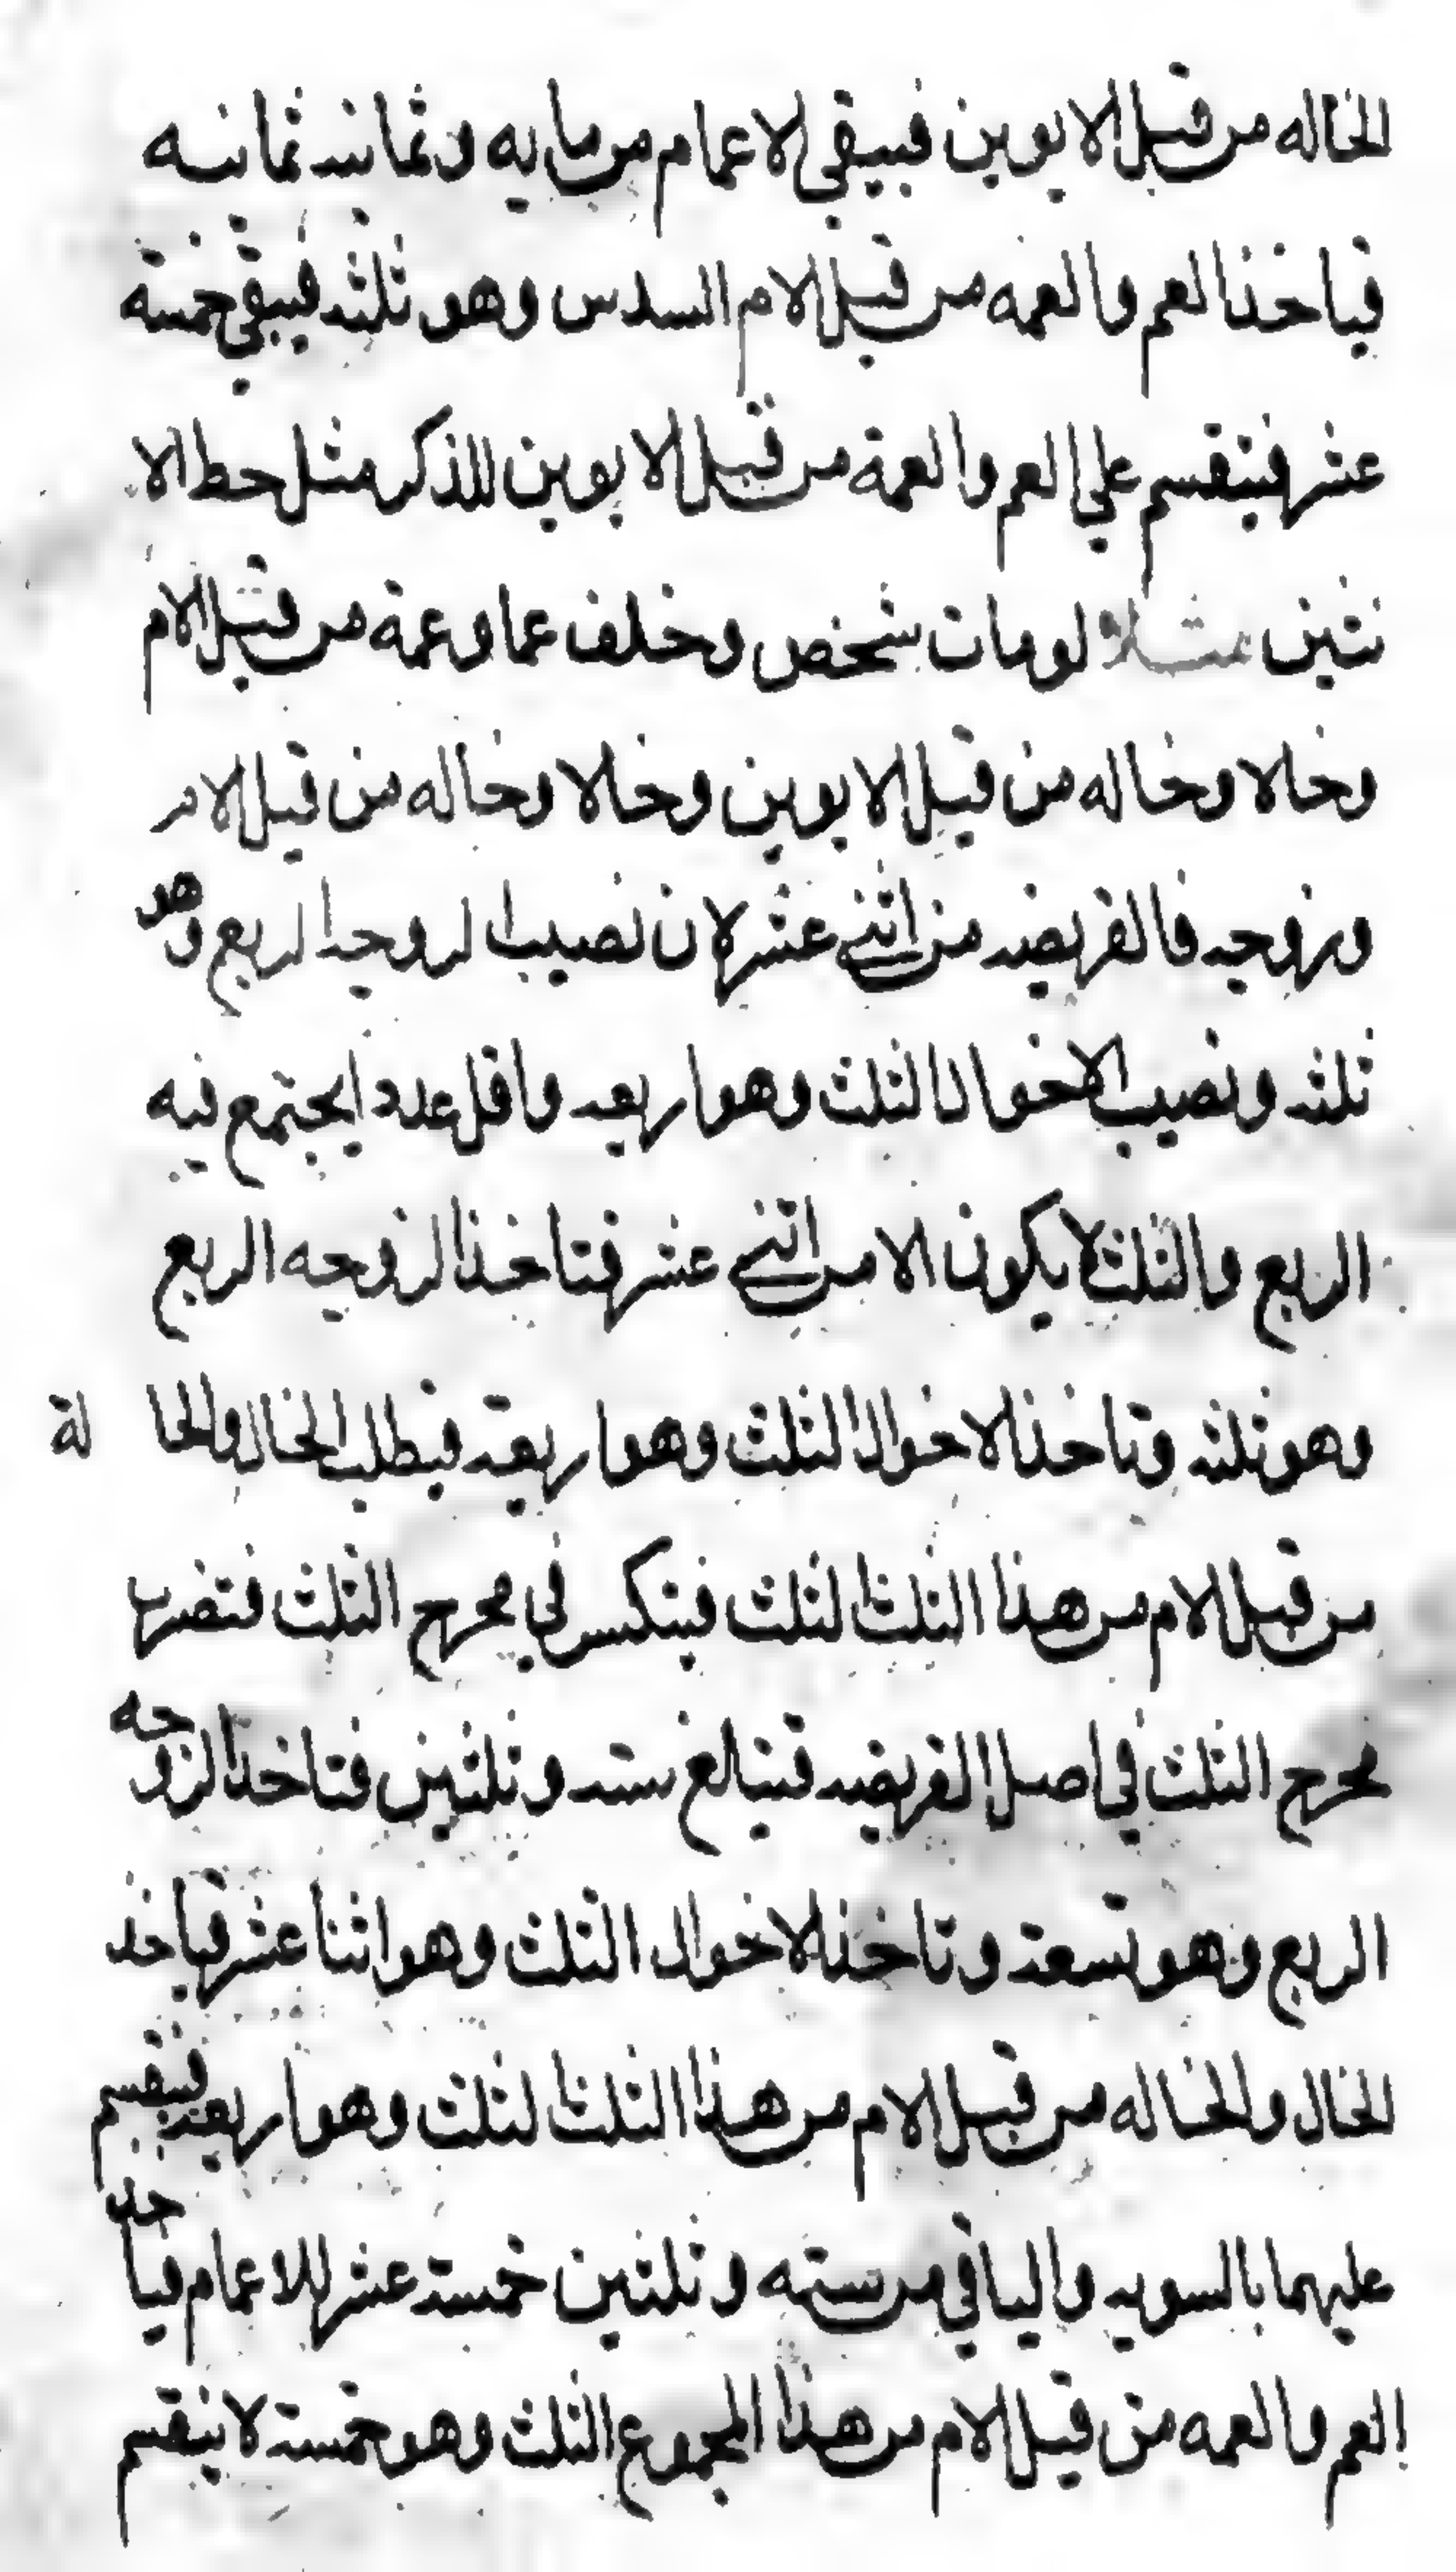 الخاله من قبل الابوين فيبقي لاعمام من مايه وثمانيه ثمانيه
فياخذ العم والعمه من قبل الام السدس وهو ثلثه فيبقي خمسة
عشر فينقسم علي العم والعمة من قبل الابوين للذكر مثل حط الا
نثين مثلا لومات شخص وخلف عما وعمة من قبل الام
وخالا وخاله من قبل الابوين وخالا وخاله من قبل الام
وزوجه فالفريضه من اثني عشر لان نصيب الزوجه الربع وهو
ثلثه ونصيب الاخوال الثلث وهو اربعه واقل عدد ايجتمع فيه
الربع والثلث لايكون الا من اثني عشر فتاخذ الزوجه الربع
وهو ثلثه وتاخذ الاخوال الثلث وهو اربعة فيطلب الخال والخا لة
من قبل الام من هذا الثلث الثلث فينكسر في مخرج الثلث فتضرب
مخرج الثلث في اصل الفريضه فتبالغ سته وثلثين فتاخذ الزوجه
الربع وهو تسعة وتاخذ الاخوال الثلث وهو اثنا عشر فياخذ
الخال والخاله من قبل الام من هذا الثلث الثلث وهو اربعه فينقسم
عليهما بالسويه والباقي من سته وثلثين خمسة عشر للاعمام فياخذ
العم والعمه من قبل الام من هذا المجموع الثلث وهو خمسة لاينقسم